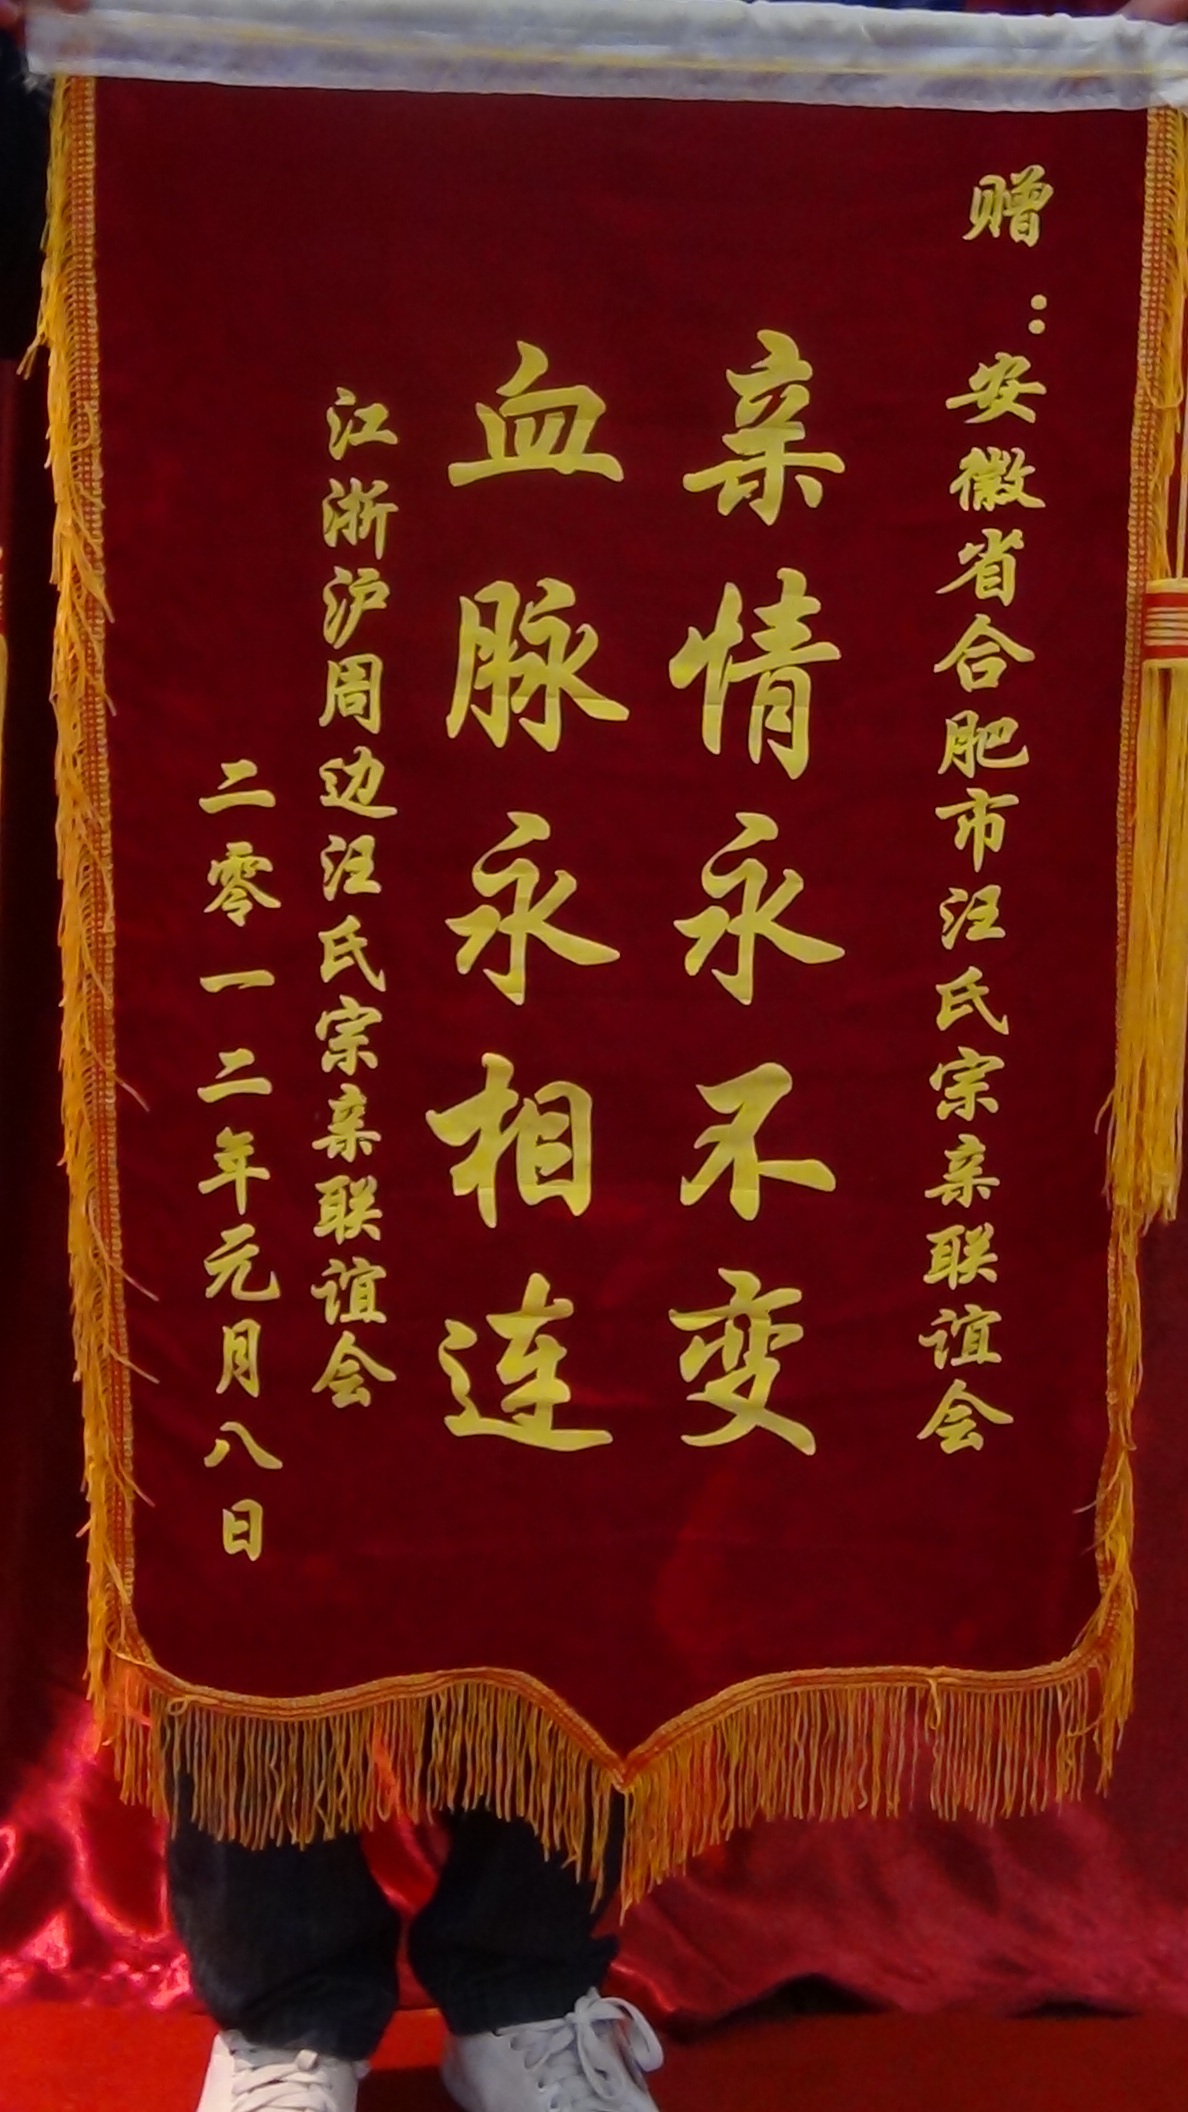 赠：安徽省合肥市汪氏宗亲联谊会
亲情永不变
血脉永相连
江浙沪周边汪氏宗亲联谊会
二零一二年元月八日